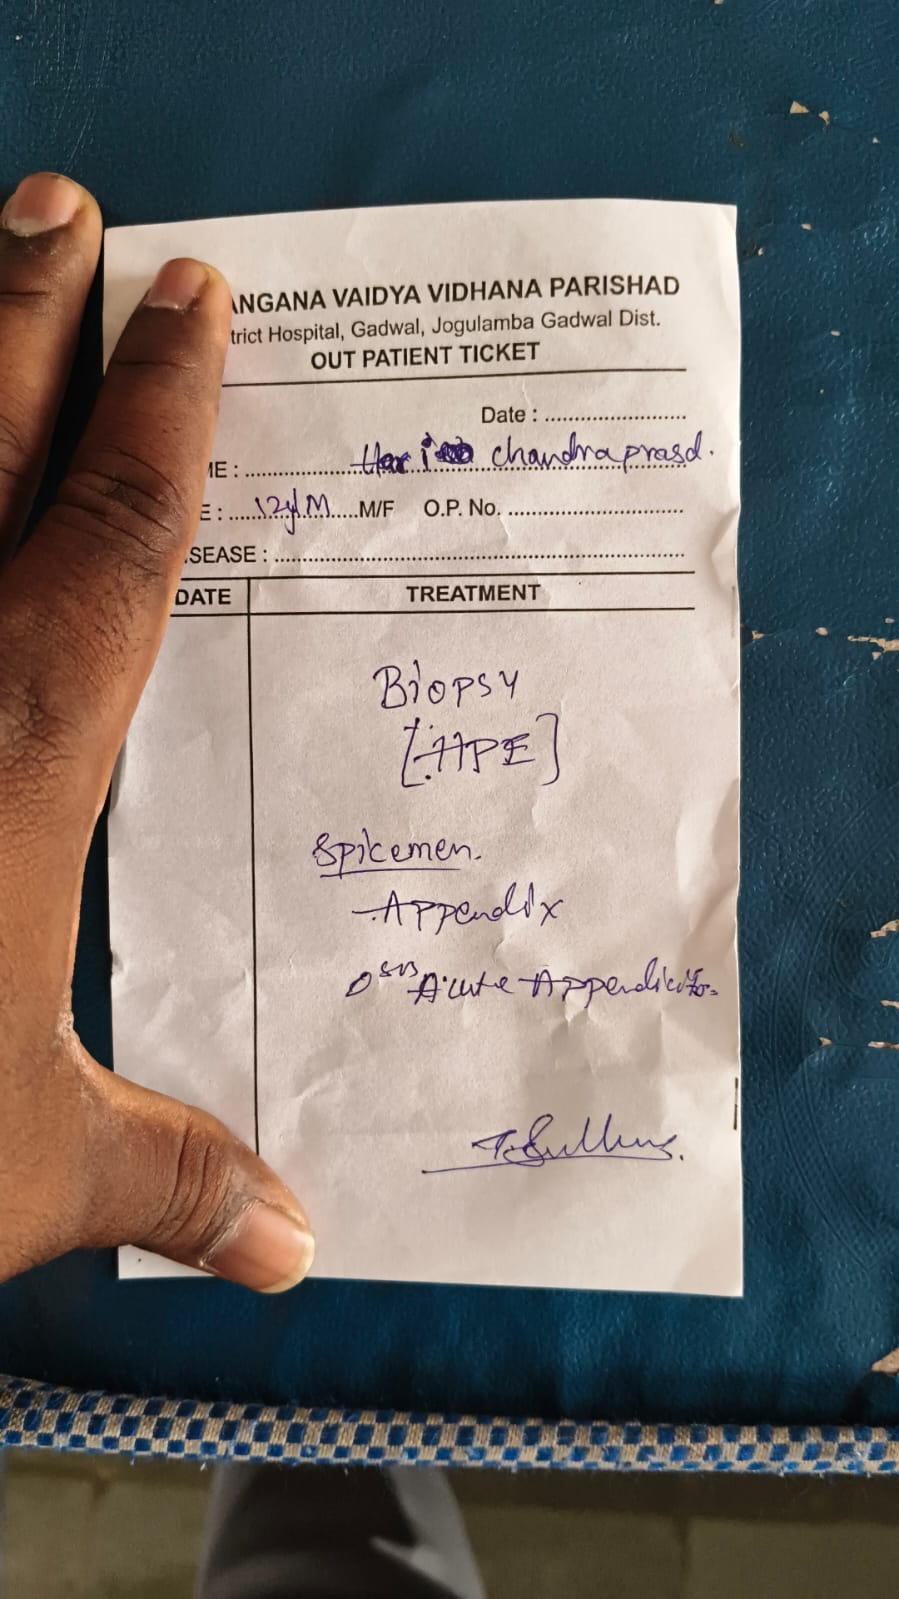 ANGANA VAIDYA VIDHANA PARISHAD
trict Hospital, Gadwal, Jogulamba Gadwal Dist.
OUT PATIENT TICKET
Date : ..........................
ME : .................. Hari chandra prasd.
E : ..... 12y/M ..... M/F O.P. No. ................................
SEASE : ...........................................................................
DATE TREATMENT
Biopsy
[HPE]
Spicemen.
- Appendix
Acute Appendicitis